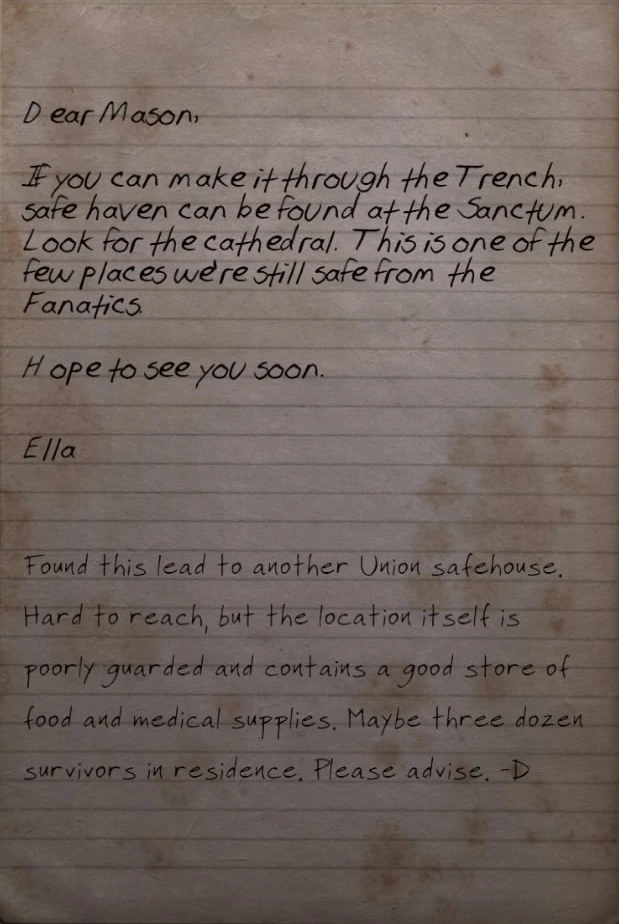 Dear Mason,
If you can make it through the Trench,
safe haven can be found at the Sanctum.
Look for the cathedral. This is one of the
few places we're still safe from the
Fanatics.
Hope to see you soon.
Ella
Found this lead to another Union safehouse.
Hard to reach, but the location itself is
poorly guarded and contains a good store of
food and medical supplies. Maybe three dozen
survivors in residence. Please advise. -D